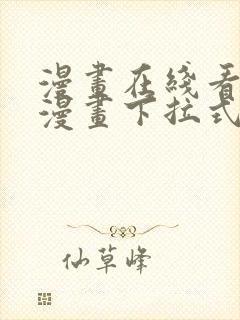 漫畫在綫看
漫畫下拉式
仙草峰